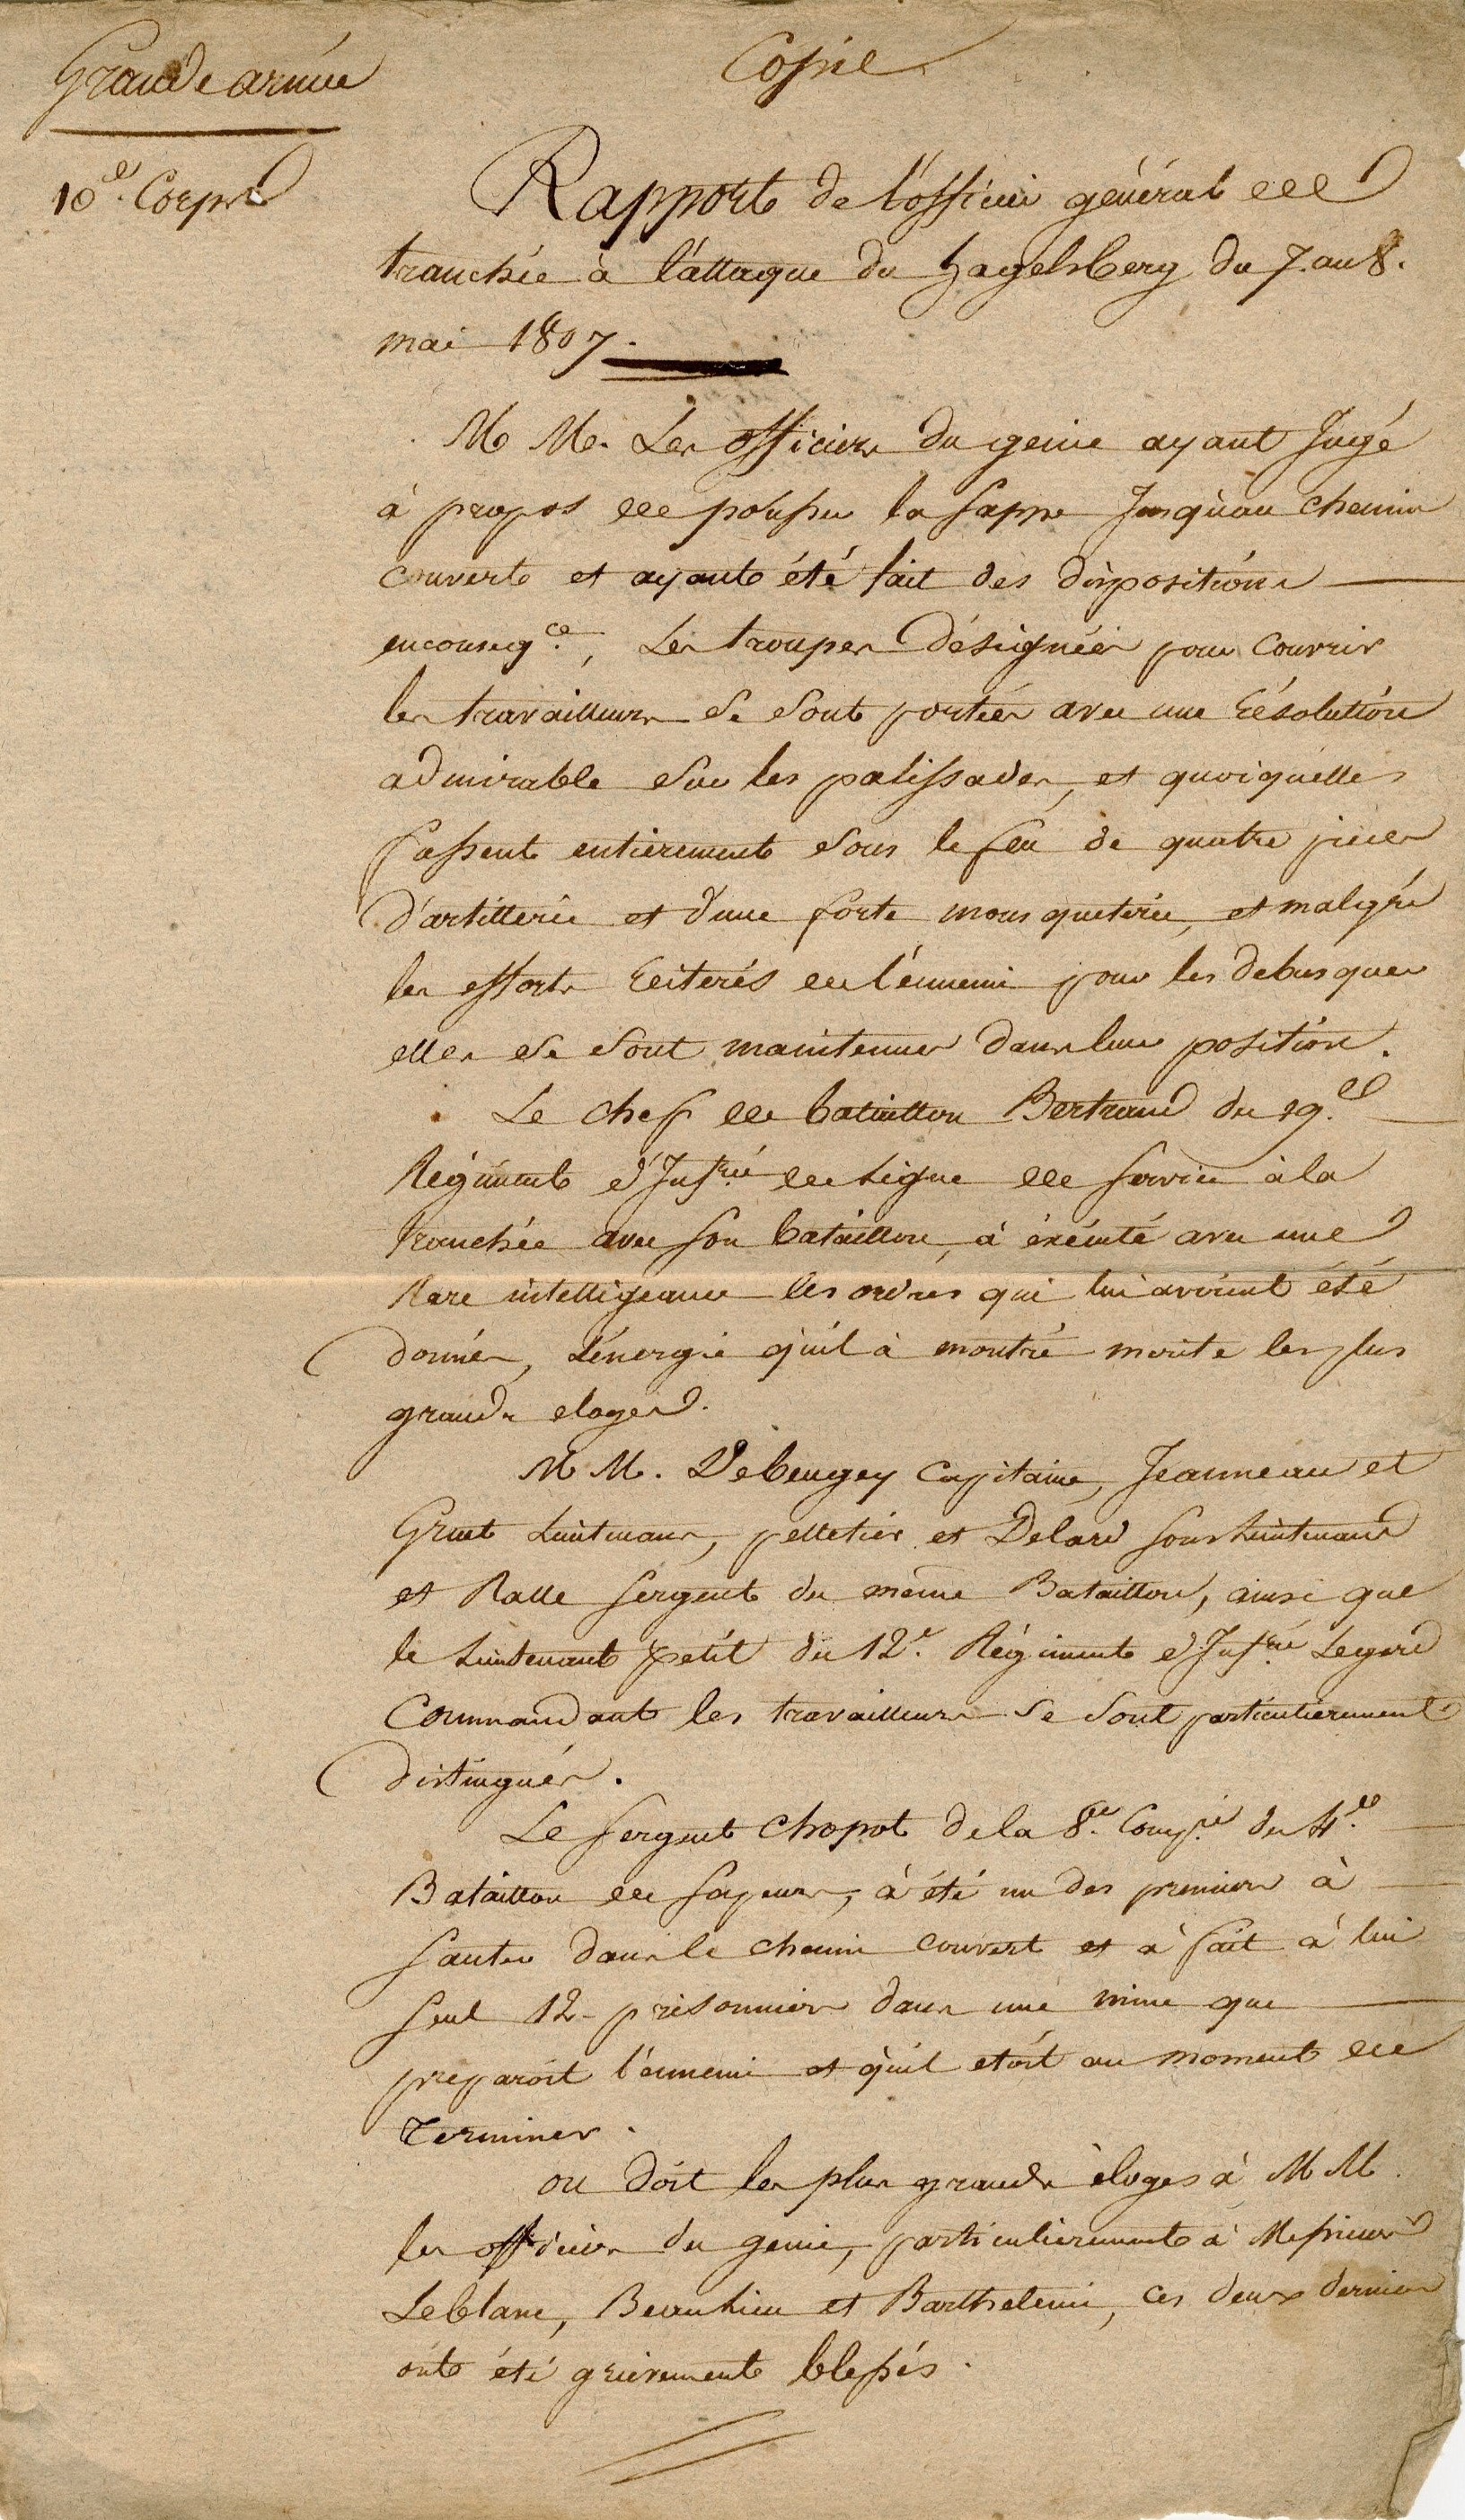 Grande armée
Copie
10e. Corps
Rapport de l'officier général de
tranchée à l'attaque du hagelsberg du 7. au 8.
mai 1807.
M M. Les officiers du genie ayant Jugé
à propos de pousser la sappe Jusqu'au chemin
couvert et ayant été fait des dispositions
en conseqce., Les troupes désignées pour couvrir
les travailleurs se sont portées avec une résolution
admirable sur les palissades, et quoiqu'elles
fussent entièrement sous le feu de quatre pièces
d'artillerie et d'une forte mousqueterie, et malgré
les efforts réiterés de l'énnemi pour les debusquer
elles se sont maintenues dans leur position.
Le chef de bataillon Bertrand du 19.e
Régiment d'Infrie de ligne de service à la
tranchée avec son bataillon, à éxécuté avec une
Rare intelligeance les ordres qui lui avoient été
donnés, L'énergie qu'il à montré mérite les plus
grands eloges.
M M. Debeugey Capitaine, Jeanneau et
Gruet Lieutenans, pelletier et Delard sous Lieutenans
et Ralle sergent du même Bataillon, ainsi que
le Lieutenant petit du 12e. Régiment d'Infrie Legere
Commandant les travailleurs se sont particulièrement
distingués.
Le sergent chopot de la 8e. Compie du 4.e
Bataillon de sapeurs, à été un des premiers à
sauter dans le chemin couvert et à fait à lui
seul 12 prisonniers dans une mine que
préparoit l'énnemi et qu'il étoit au moment de
Terminer.
on doit les plus grands éloges à M M.
les officiers du genie, particulièrement à Messieurs
Leblanc, Beaulieu et Barthelemi, ces deux derniers
ont été grièvement blessés.